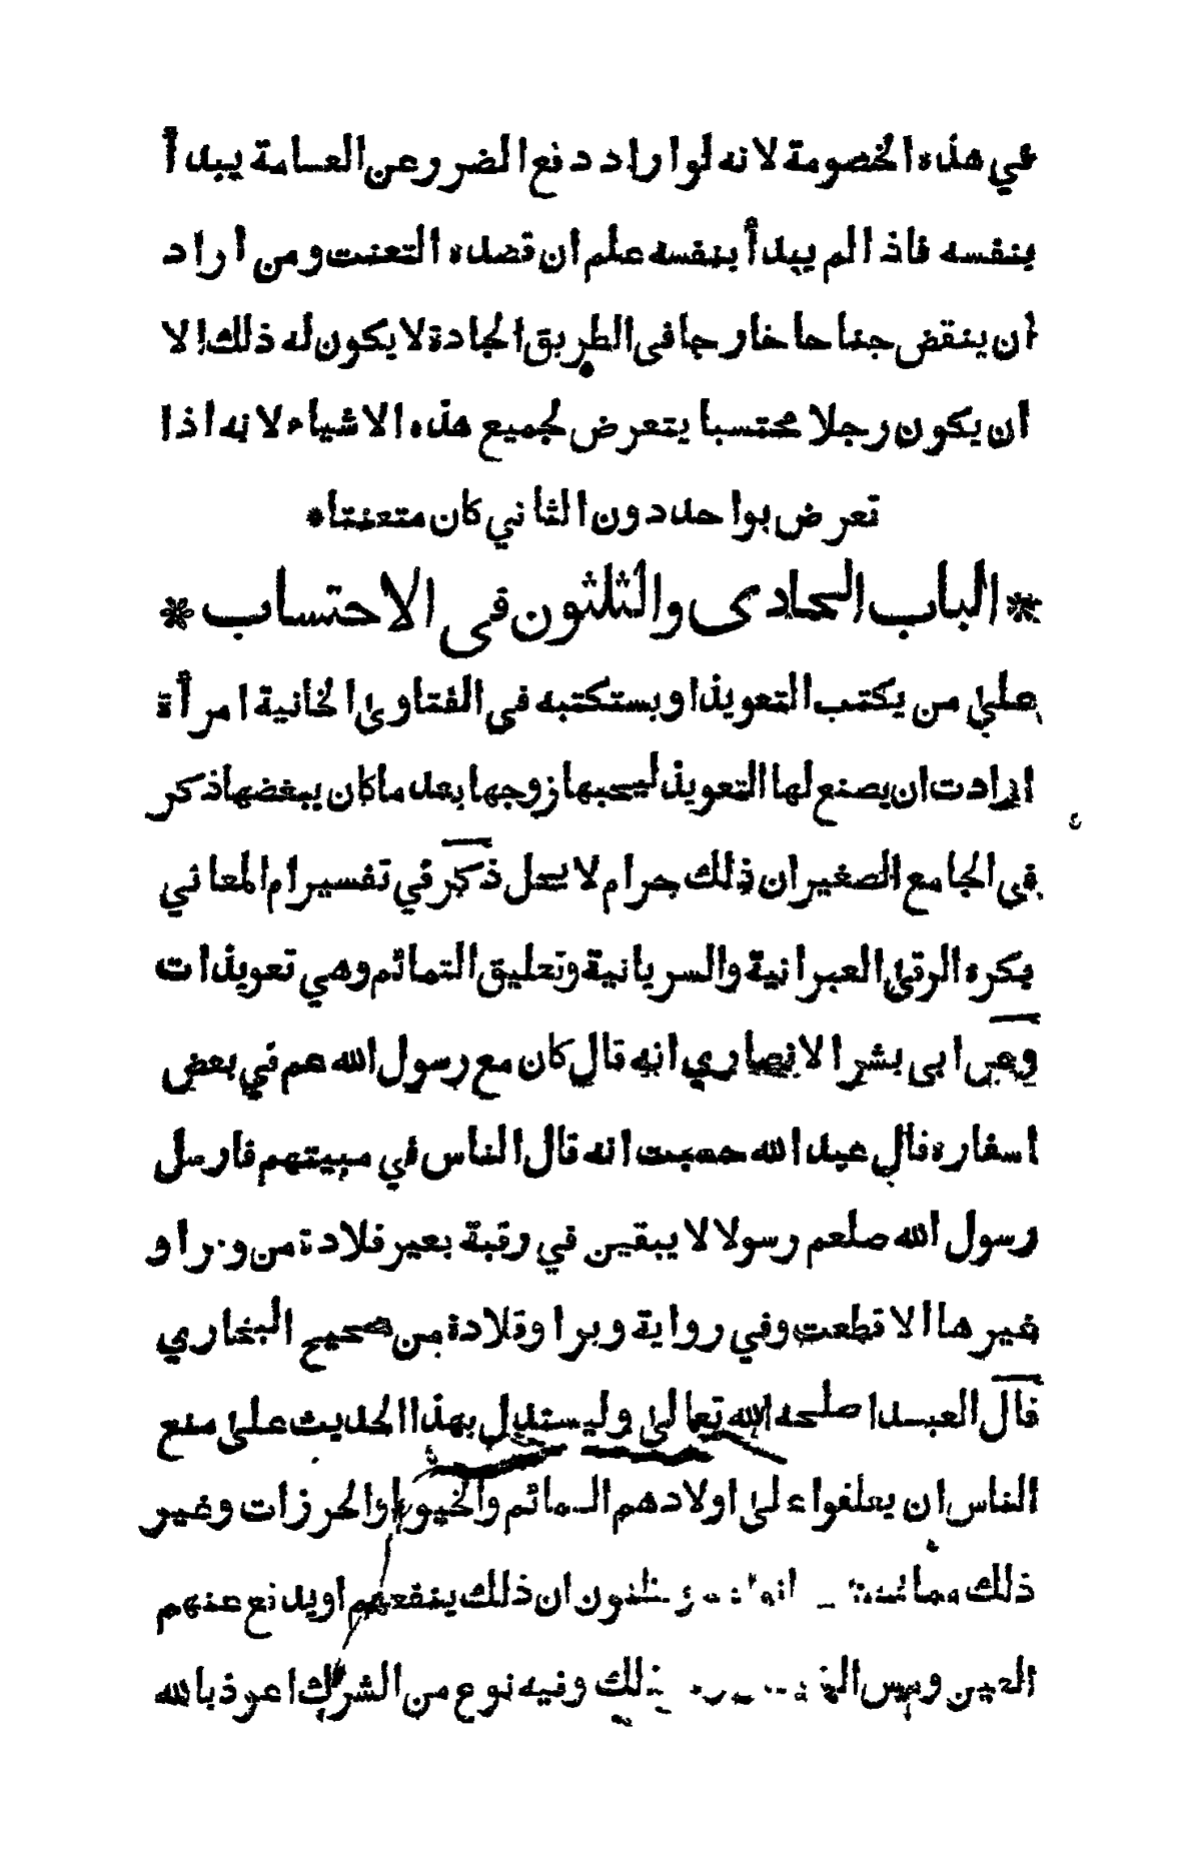 في هذه الخصومة لانه لو اراد دفع الضرر عن العامة يبدأ
بنفسه فاذا لم يبدأ بنفسه علم ان قصده التعنت ومن اراد
ان ينقض جناحا خارجا في الطريق الجادة لا يكون له ذلك الا
ان يكون رجلا محتسبا يتعرض لجميع هذه الاشياء لانه اذا
تعرض بواحد دون الثاني كان متعنتا*
* الباب الحادى والثلثون فى الاحتساب *
على من يكتب التعويذ او يستكتبه فى الفتاوى الخانية امرأة
ارادت ان يصنع لها التعويذ ليحبها زوجها بعد ما كان يبغضها ذكر
فى الجامع الصغير ان ذلك حرام لا يحل ذكر في تفسير ام المعاني
يكره الرقى العبرانية والسريانية وتعليق التمائم وهي تعويذات
وعن ابى بشر الانصاري انه قال كان مع رسول الله عم في بعض
اسفاره فال عبد الله حسبت انه قال الناس في مبيتهم فارسل
رسول الله صلعم رسولا لا يبقين في رقبة بعير قلادة من وبر او
غيرها الا قطعت وفي رواية وبرا وقلادة من صحيح البخاري
قال العبد اصلحه الله تعالى وليستدل بهذا الحديث على منع
الناس ان يعلقوا على اولادهم التمائم والخيوط والخرزات وغير
ذلك مما يظنون ان ذلك ينفعهم او يدفع عنهم
العين ومس ذلك وفيه نوع من الشرك اعوذ بالله